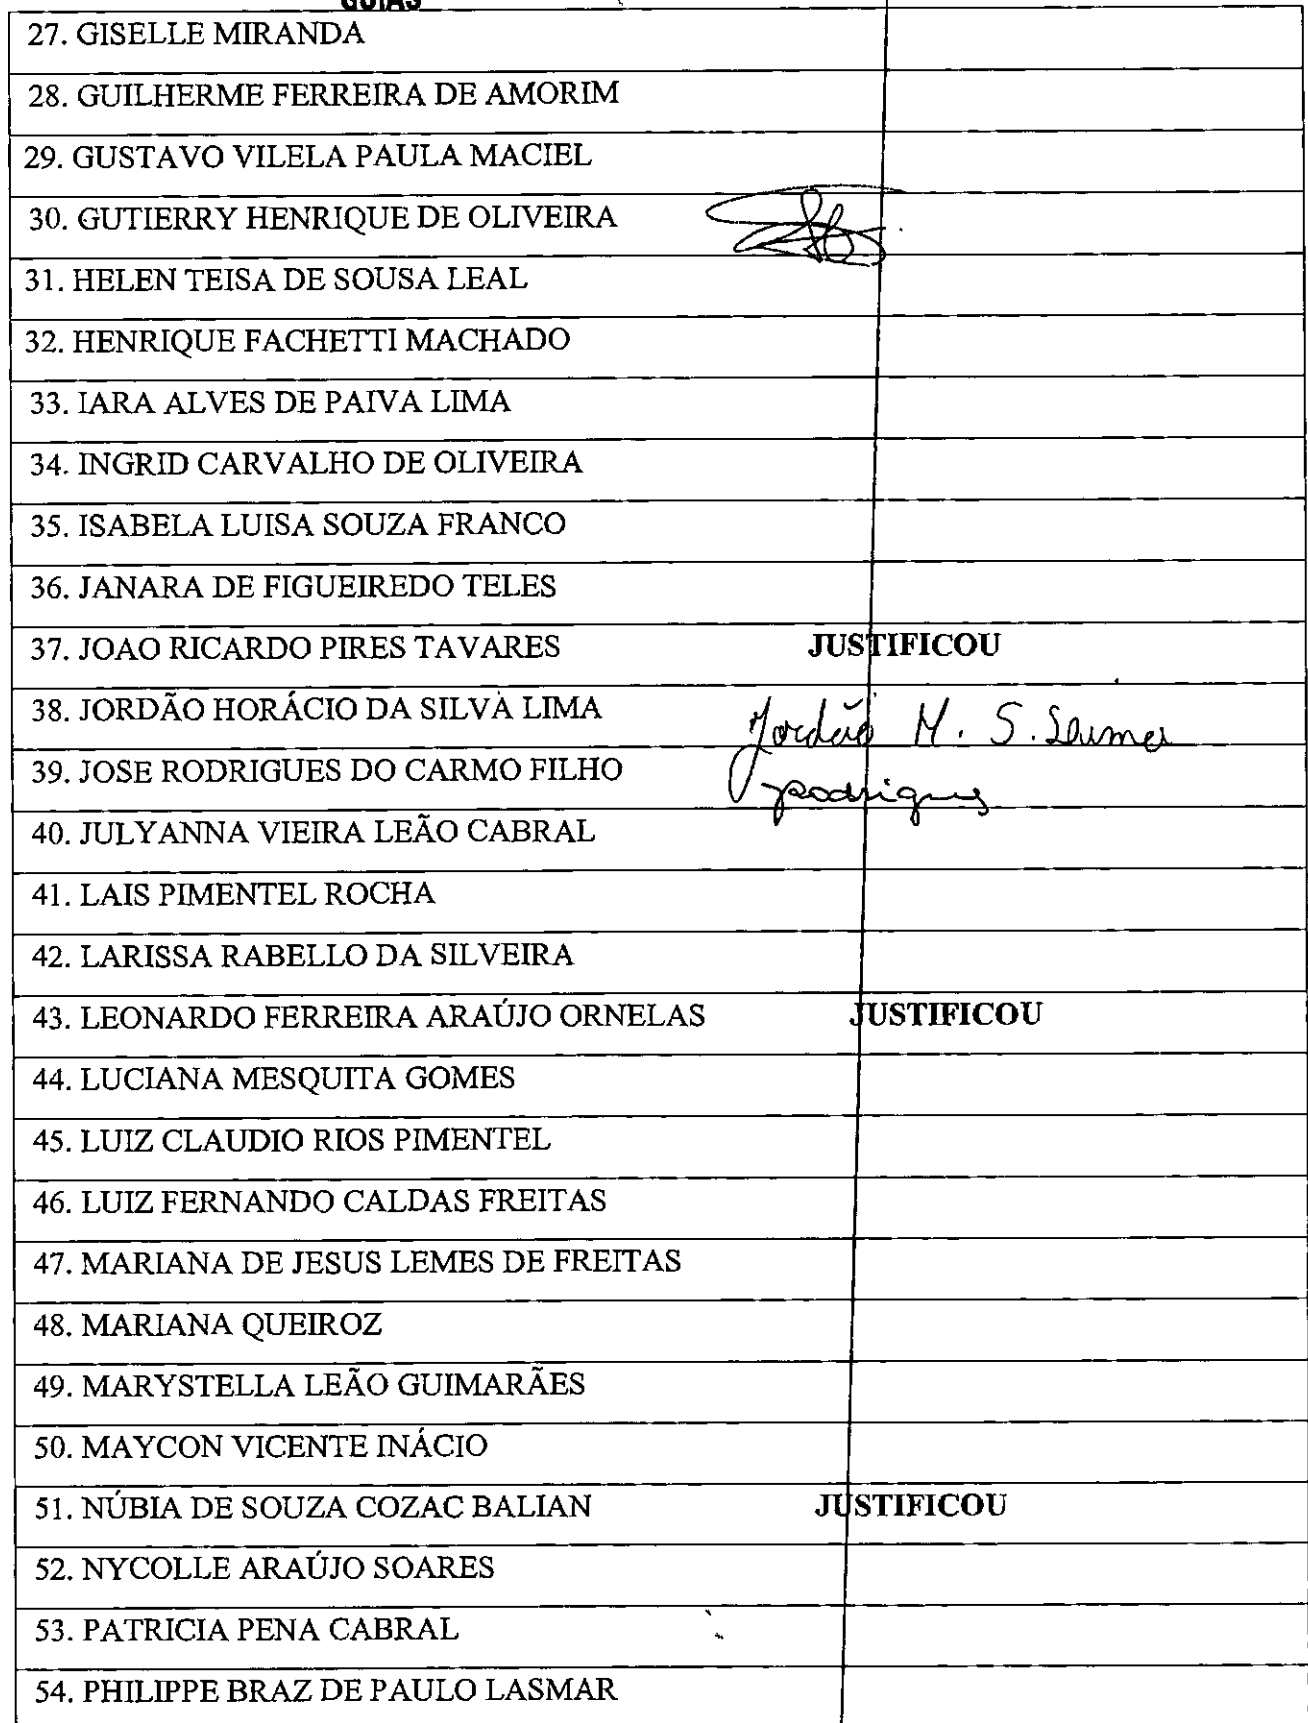 GOIÁS
27. GISELLE MIRANDA
28. GUILHERME FERREIRA DE AMORIM
29. GUSTAVO VILELA PAULA MACIEL
30. GUTIERRY HENRIQUE DE OLIVEIRA
31. HELEN TEISA DE SOUSA LEAL
32. HENRIQUE FACHETTI MACHADO
33. IARA ALVES DE PAIVA LIMA
34. INGRID CARVALHO DE OLIVEIRA
35. ISABELA LUISA SOUZA FRANCO
36. JANARA DE FIGUEIREDO TELES
37. JOAO RICARDO PIRES TAVARES JUSTIFICOU
38. JORDÃO HORÁCIO DA SILVA LIMA Jordão H. S. Lima
39. JOSE RODRIGUES DO CARMO FILHO Rodrigues
40. JULYANNA VIEIRA LEÃO CABRAL
41. LAIS PIMENTEL ROCHA
42. LARISSA RABELLO DA SILVEIRA
43. LEONARDO FERREIRA ARAÚJO ORNELAS JUSTIFICOU
44. LUCIANA MESQUITA GOMES
45. LUIZ CLAUDIO RIOS PIMENTEL
46. LUIZ FERNANDO CALDAS FREITAS
47. MARIANA DE JESUS LEMES DE FREITAS
48. MARIANA QUEIROZ
49. MARYSTELLA LEÃO GUIMARÃES
50. MAYCON VICENTE INÁCIO
51. NÚBIA DE SOUZA COZAC BALIAN JUSTIFICOU
52. NYCOLLE ARAÚJO SOARES
53. PATRICIA PENA CABRAL
54. PHILIPPE BRAZ DE PAULO LASMAR